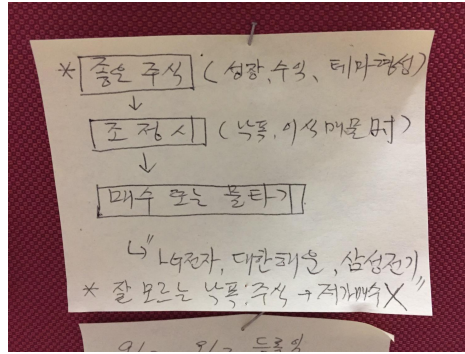 * 좋은 주식 (성장, 수익, 테마형성)
↓
조정시 (낙폭, 이식매물時)
↓
매수 또는 물타기
↳ "LG전자, 대한해운, 삼성전기"
* 잘 모르는 낙폭주식 → 저가매수 X
등록일